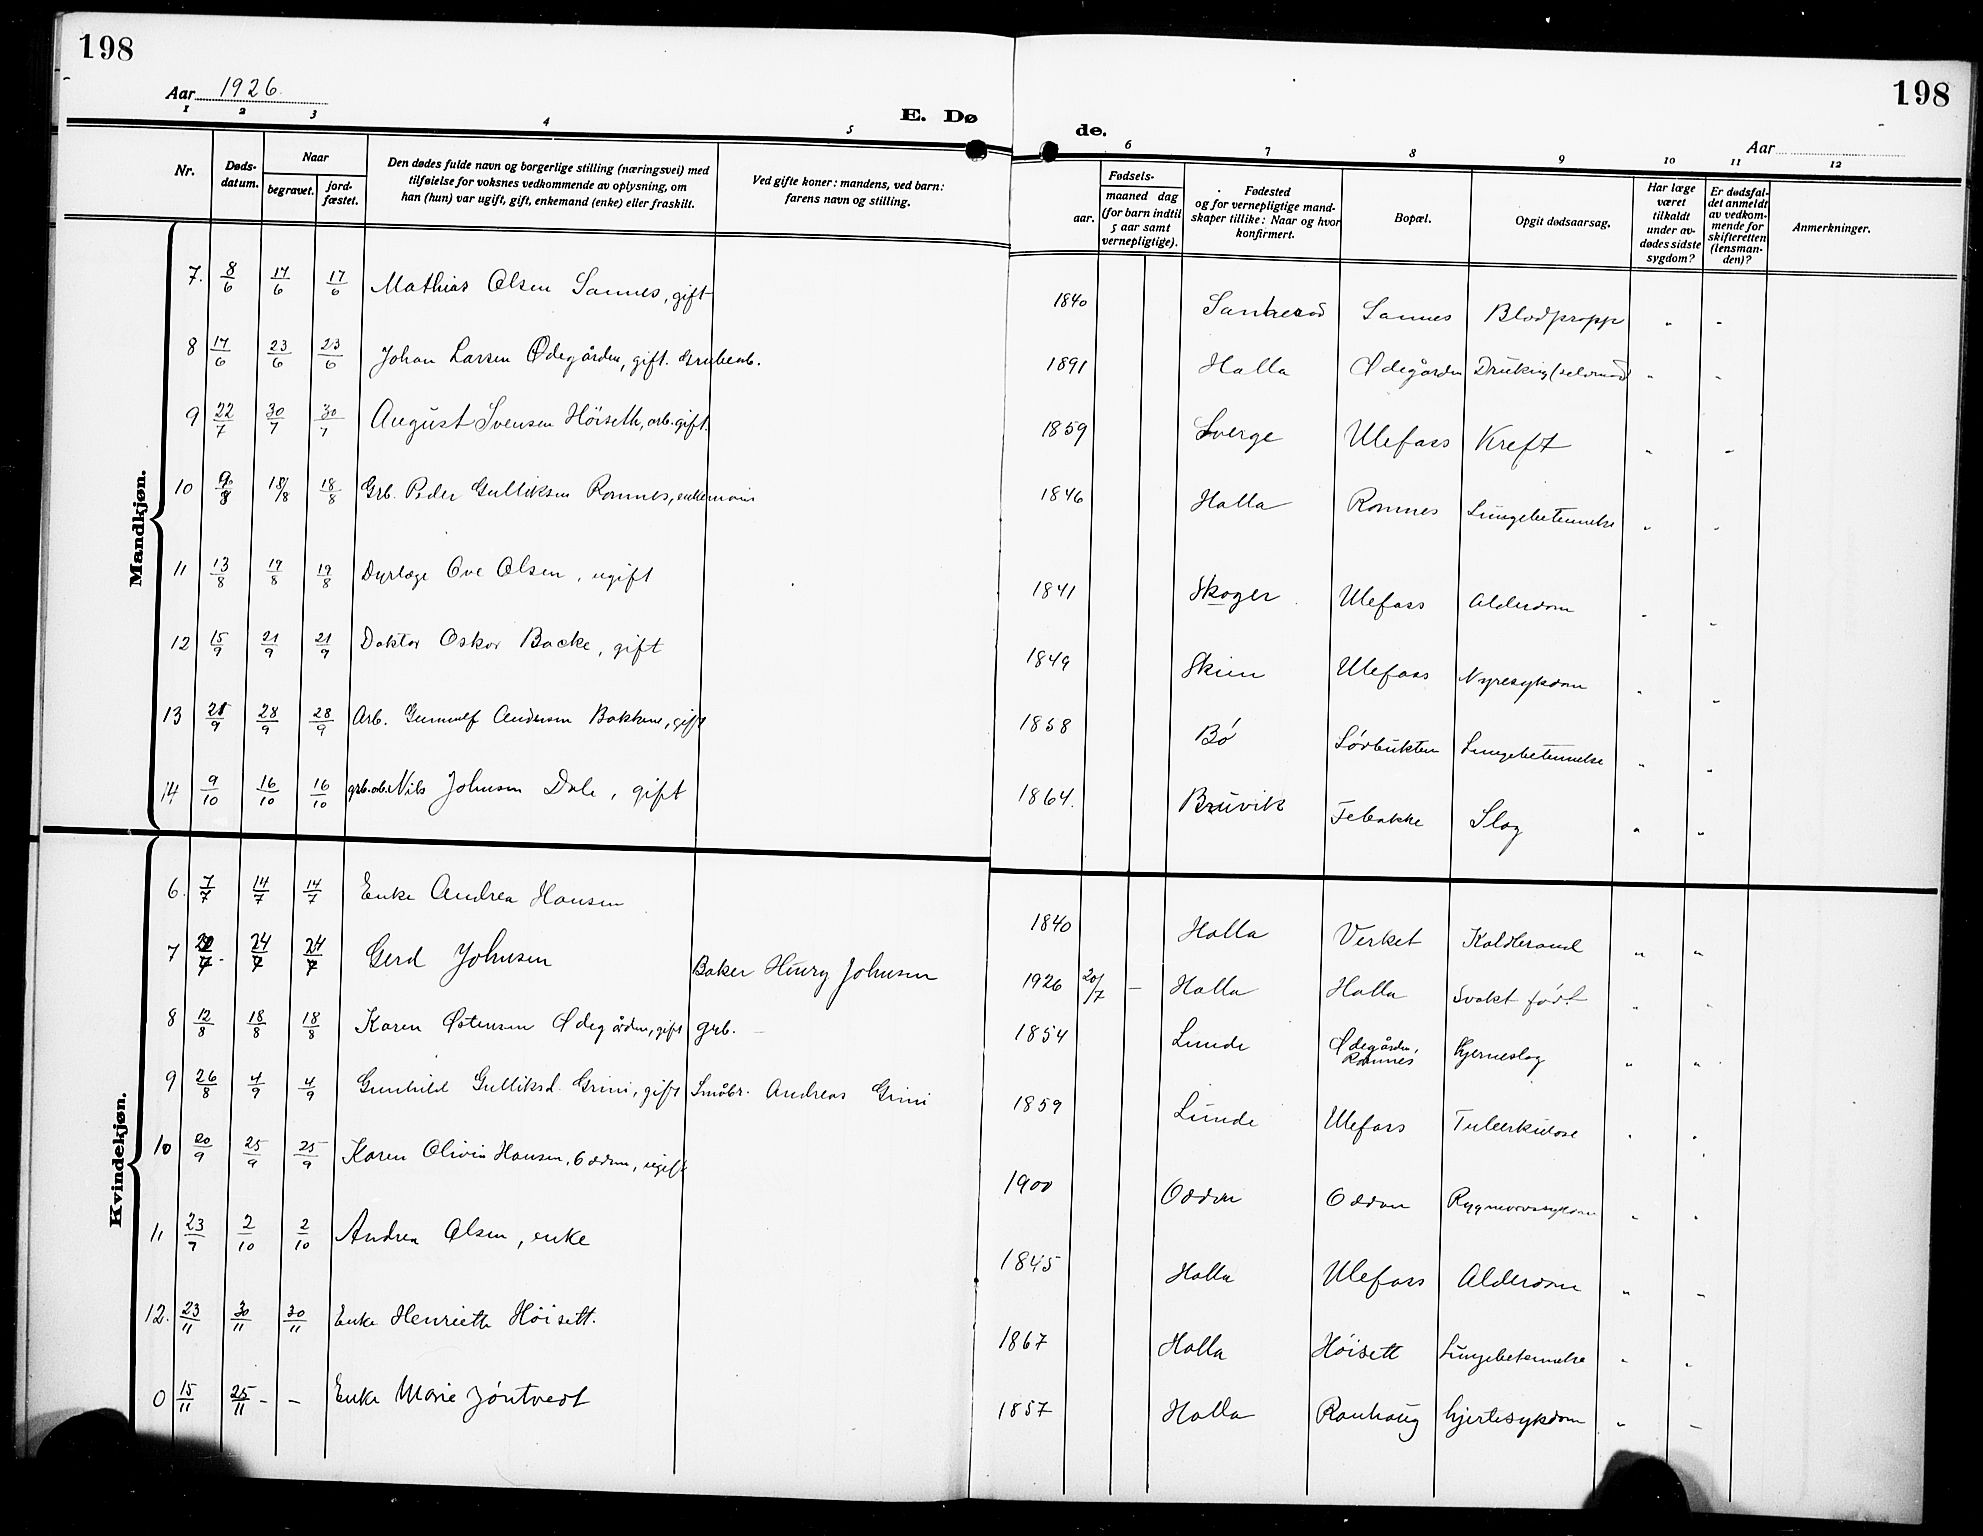 198
198
Aar 1926.
E. Døde.
Aar
1 2 3 4 5 6 7 8 9 10 11 12
Nr.
Døds-datum.
Naar
begravet.
jord-fæstet.
Den dødes fulde navn og borgerlige stilling (næringsvei) med
tilføielse for voksnes vedkommende av oplysning, om
han (hun) var ugift, gift, enkemand (enke) eller fraskilt.
Ved gifte koner: mandens, ved barn:
farens navn og stilling.
Fødsels-
aar.
maaned dag
(for barn indtil
5 aar samt
vernepligtige).
Fødested
og for vernepligtige mand-
skaper tillike: Naar og hvor
konfirmert.
Bopæl.
Opgit dødsaarsag.
Har læge
været
tilkaldt
under av-
dødes sidste
sygdom?
Er dødsfal-
det anmeldt
av vedkom-
mende for
skifteretten
(lensman-
den)?
Anmerkninger.
Mandkjøn.
7. 8/6 17/6 17/6 Mathias Olsen Sannes, gift 1840 Sannes Blodpropp " "
8 17/6 23/6 23/6 Johan Larsen Ødegården, gift. Grubearb. 1891 Holla Ødegården " "
9 22/7 30/7 30/7 August Svensen Höiseth, arb. gift. 1859 Sverge Ulefoss Kreft " "
10 18/8 18/8 Grb. Peder Gulliksen Romnes, enkemann 1846 Holla Romnes Lungebetennelse " "
11 13/8 19/8 19/8 Dyrlæge Ove Olsen, ugift 1841 Skoger Ulefoss Alderdom " "
12 15/9 21/9 21/9 Doktor Oskar Backe, gift 1849 Skien Ulefoss Nyresykdom " "
13 28/9 28/9 Arb. Gunnulf Andersen Bakkene, gift 1858 Bö Lövbukten Lungebetennelse " "
14 9/10 16/10 16/10 Nils Johnsen Dale, gift 1864. Bruvik Febakke Slag " "
Kvindekjøn.
6. 7/7 14/7 14/7 Enke Andrea Hansen 1840 Holla Verket Koldbrand " "
7 24/7 24/7 Gerd Johnsen Baker Henry Johnsen 1926 20/7 – Holla Holla Svakt født " "
8 12/8 18/8 18/8 Karen Østensen Ødegården, gift grb. – 1854 Lunde Ødegården, Romnes Hjerneslag " "
9 26/8 4/9 4/9 Gunhild Gulliksd. Grini, gift Småbr. Andreas Grini 1859 Lunde Ulefoss Tuberkulose " "
10 20/9 25/9 25/9 Karen Olivia Hansen, Odden, ugift 1900 Odden Odden Rygmarvssykdom " "
11 23/9 2/10 2/10 Andrea Olsen, enke 1845 Holla Ulefoss Alderdom " "
12. 23/11 30/11 30/11 Enke Henriette Höisett. 1867 Holla Höisett Lungebetennelse " "
0 15/11 25/11 – – Enke Marie Jöntvedt 1857 Holla Ranhaug hjertesykdom " –